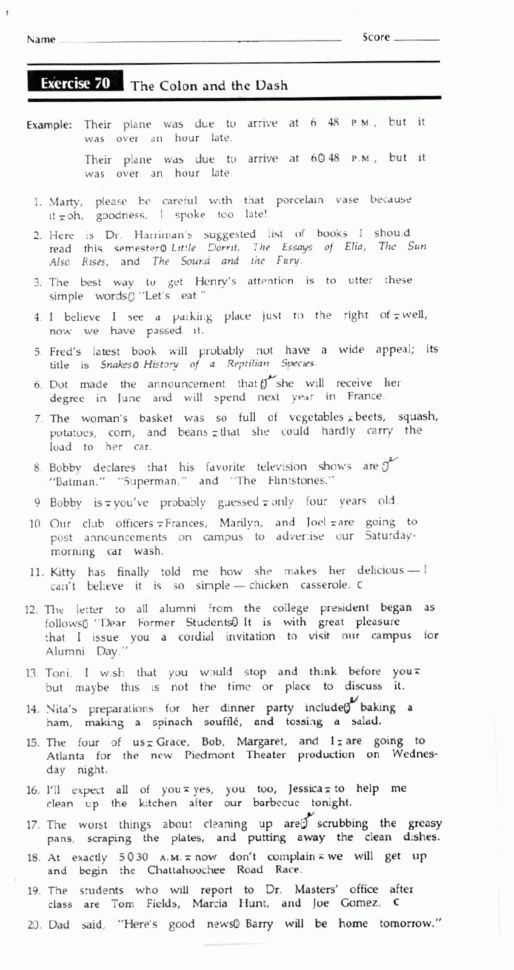 Name
Score
Exercise 70 The Colon and the Dash
Example: Their plane was due to arrive at 6 48 P.M., but it
was over an hour late.
Their plane was due to arrive at 6:48 P.M., but it
was over an hour late
1. Marty, please be careful with that porcelain vase because
it — oh, goodness, I spoke too late!
2. Here is Dr. Harriman's suggested list of books I should
read this semester: Little Dorrit, The Essays of Elia, The Sun
Also Rises, and The Sound and the Fury.
3. The best way to get Henry's attention is to utter these
simple words: "Let's eat"
4. I believe I see a parking place just to the right of — well,
now we have passed it.
5. Fred's latest book will probably not have a wide appeal; its
title is Snakes: History of a Reptilian Species.
6. Dot made the announcement that: she will receive her
degree in June and will spend next year in France.
7. The woman's basket was so full of vegetables — beets, squash,
potatoes, corn, and beans — that she could hardly carry the
load to her car.
8. Bobby declares that his favorite television shows are:
"Batman," "Superman," and "The Flintstones."
9. Bobby is — you've probably guessed — only four years old.
10. Our club officers — Frances, Marilyn, and Joel — are going to
post announcements on campus to advertise our Saturday-
morning car wash.
11. Kitty has finally told me how she makes her delicious — I
can't believe it is so simple — chicken casserole. C
12. The letter to all alumni from the college president began as
follows: "Dear Former Students: It is with great pleasure
that I issue you a cordial invitation to visit our campus for
Alumni Day."
13. Toni, I wish that you would stop and think before you —
but maybe this is not the time or place to discuss it.
14. Nita's preparations for her dinner party include: baking a
ham, making a spinach soufflé, and tossing a salad.
15. The four of us — Grace, Bob, Margaret, and I — are going to
Atlanta for the new Piedmont Theater production on Wednes-
day night.
16. I'll expect all of you — yes, you too, Jessica — to help me
clean up the kitchen after our barbecue tonight.
17. The worst things about cleaning up are: scrubbing the greasy
pans, scraping the plates, and putting away the clean dishes.
18. At exactly 5:30 A.M. — now don't complain — we will get up
and begin the Chattahoochee Road Race.
19. The students who will report to Dr. Masters' office after
class are Tom Fields, Marcia Hunt, and Joe Gomez. C
20. Dad said, "Here's good news: Barry will be home tomorrow."